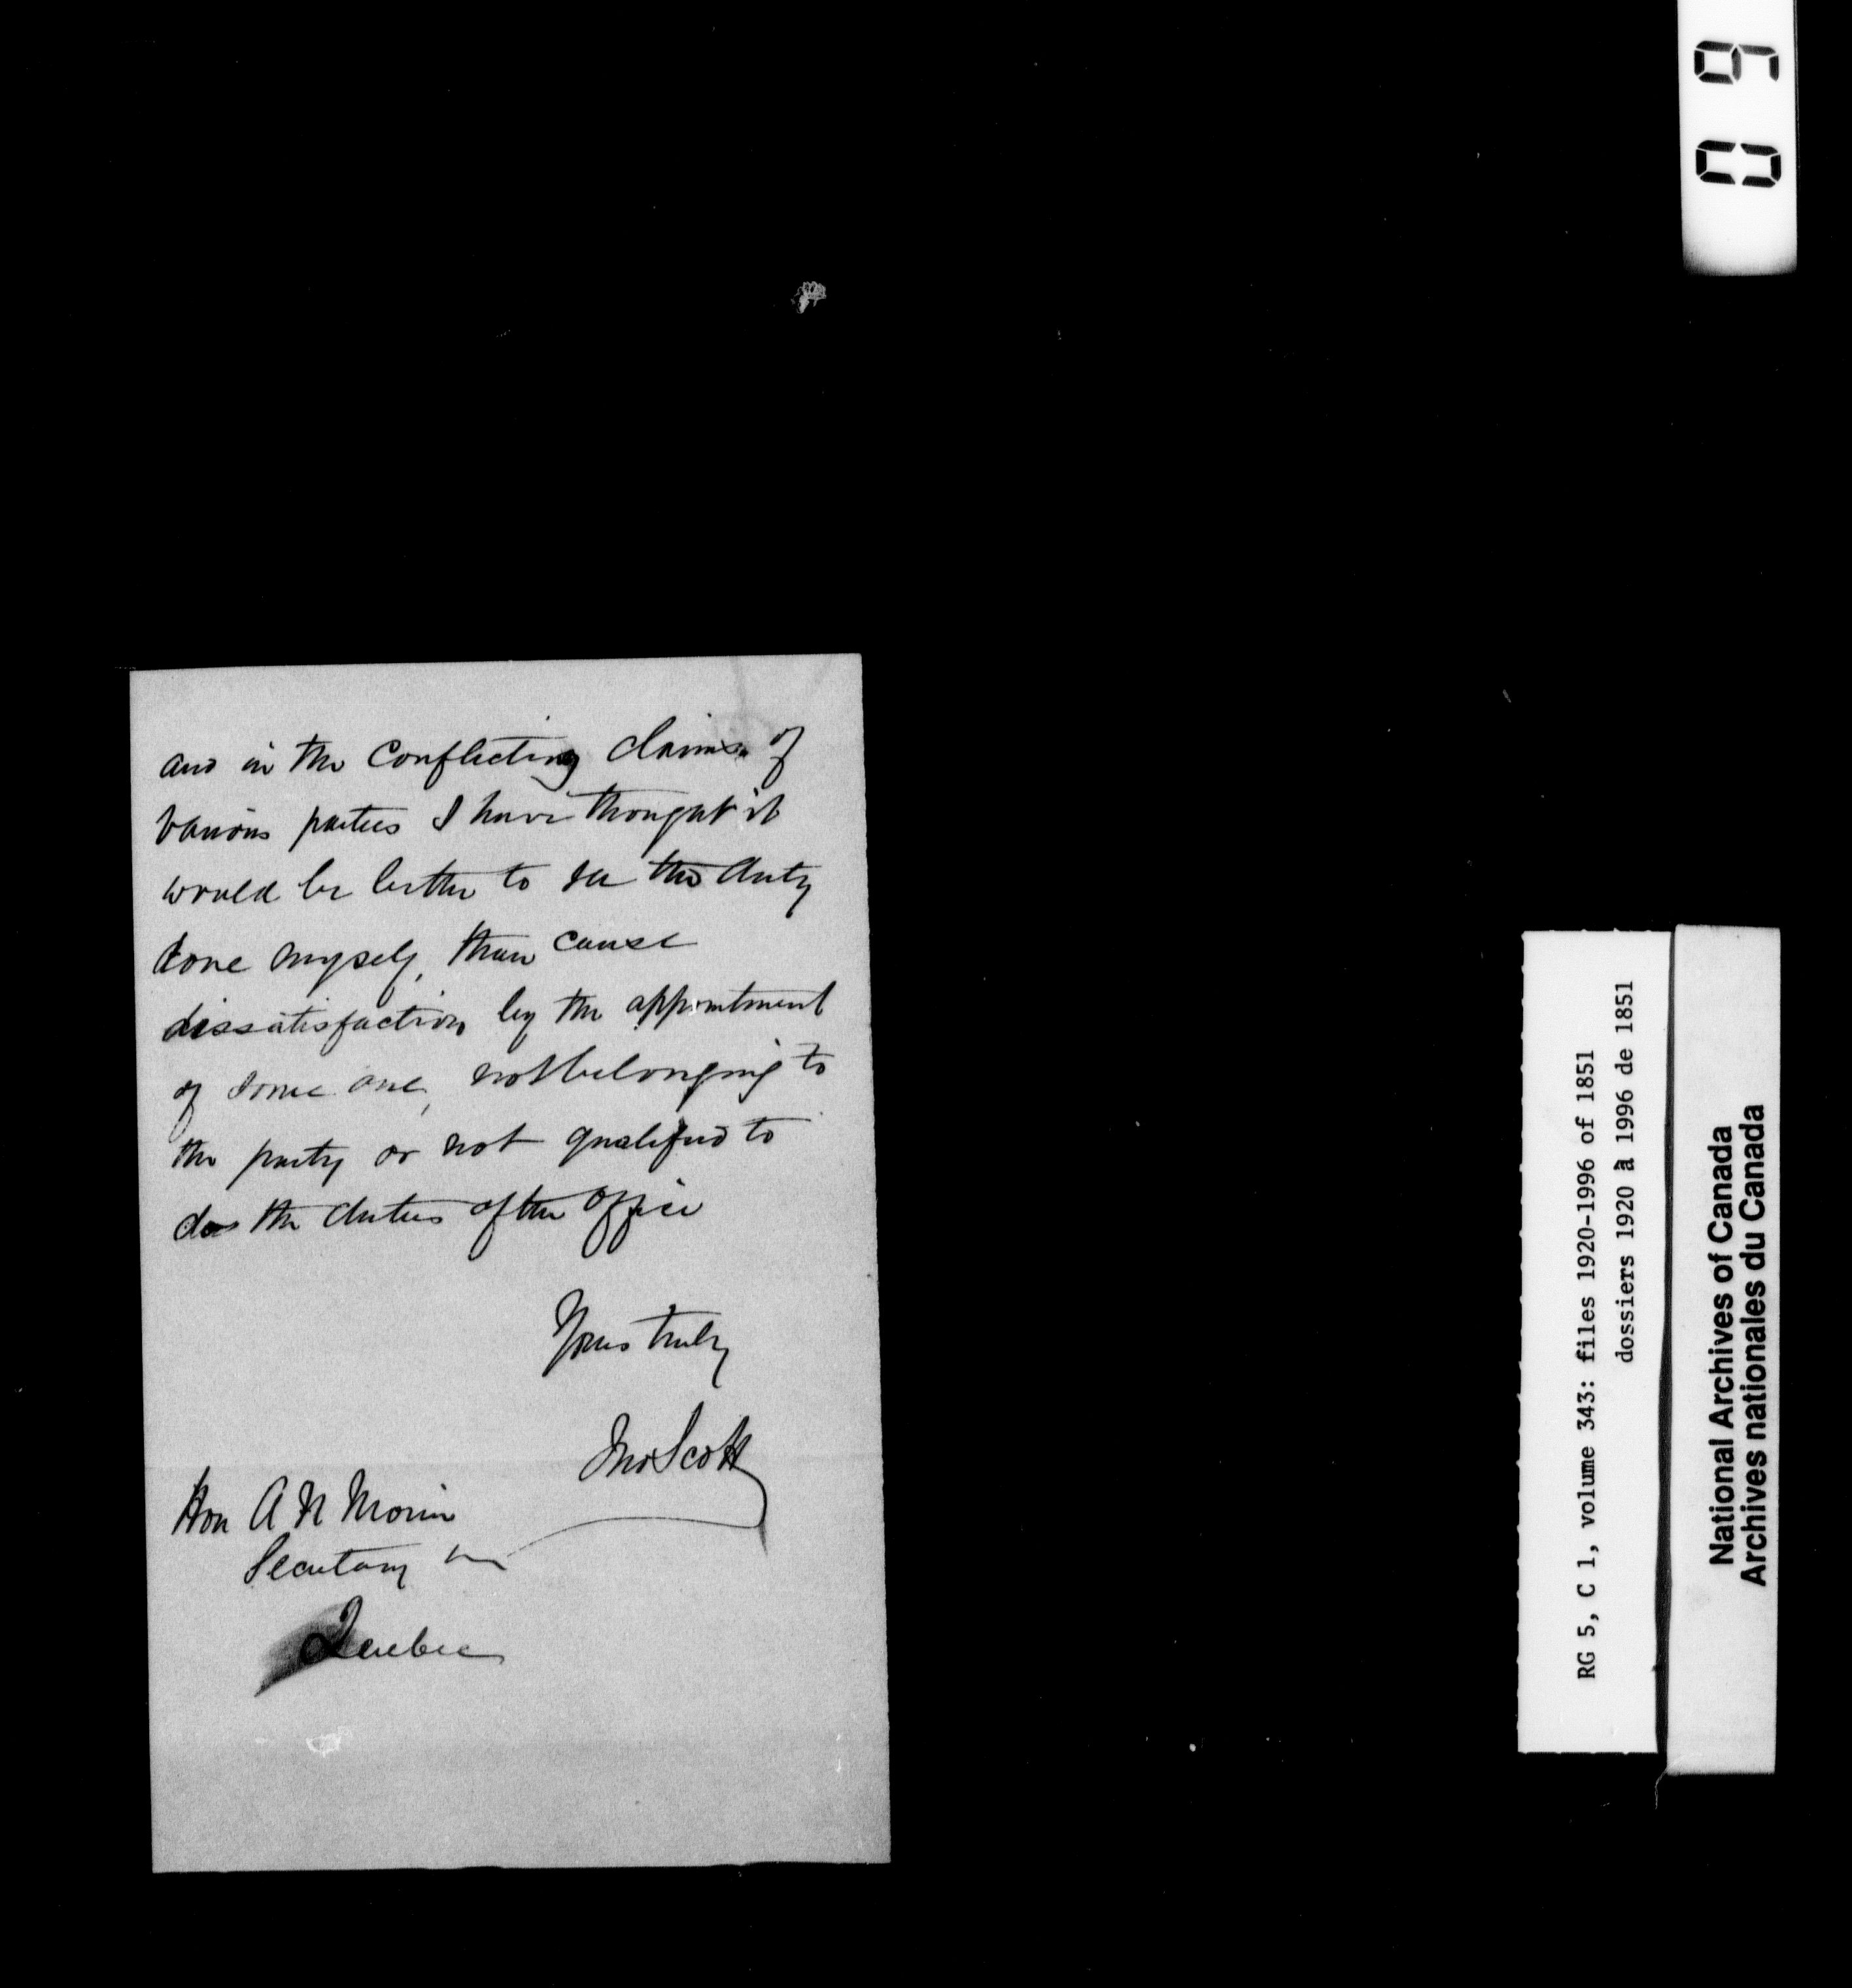 and in the Conflicting claims of
various parties I have thought it
would be better to see the duty
done myself, than cause
dissatisfaction by the appointment
of some one, not belonging to
the party or not qualified to
do the duties of the office
Yours truly
Jno Scott
Hon A N Morin
Secretary
Quebec
09
RG 5, C 1, volume 343: files 1920-1996 of 1851
dossiers 1920 à 1996 de 1851
National Archives of Canada
Archives nationales du Canada